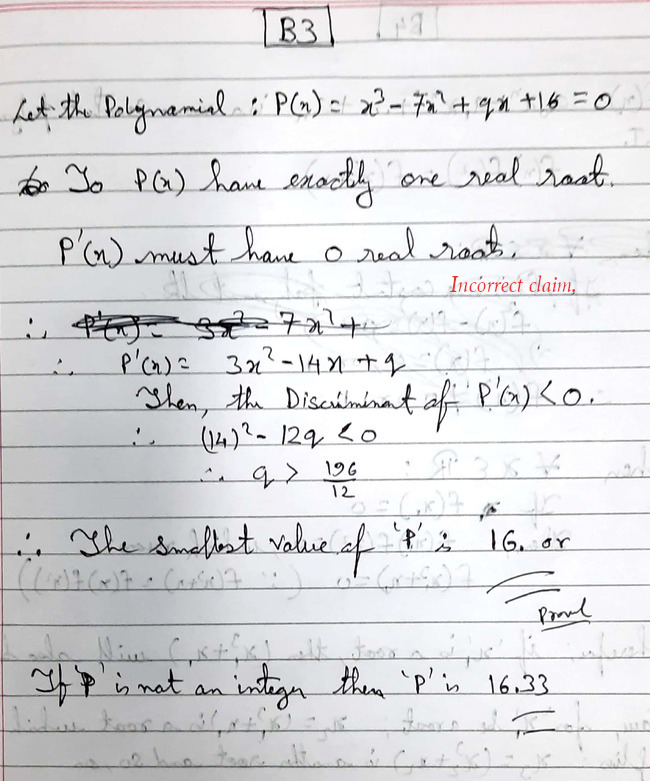 B3
Let the Polynamial : P(x) = x³ - 7x² + qx + 16 = 0
To P(x) have exactly one real root.
P'(x) must have 0 real roots.
Incorrect claim,
∴ P'(x) = 3x² = 7x² +
∴ P'(x) = 3x² - 14x + q
Then, the Discriminant of P'(x) < 0.
∴ (14)² - 12q < 0
∴ q > 196/12
∴ The smallest value of 'P' is 16. or
Proved
If 'P' is not an integer then 'P' is 16.33